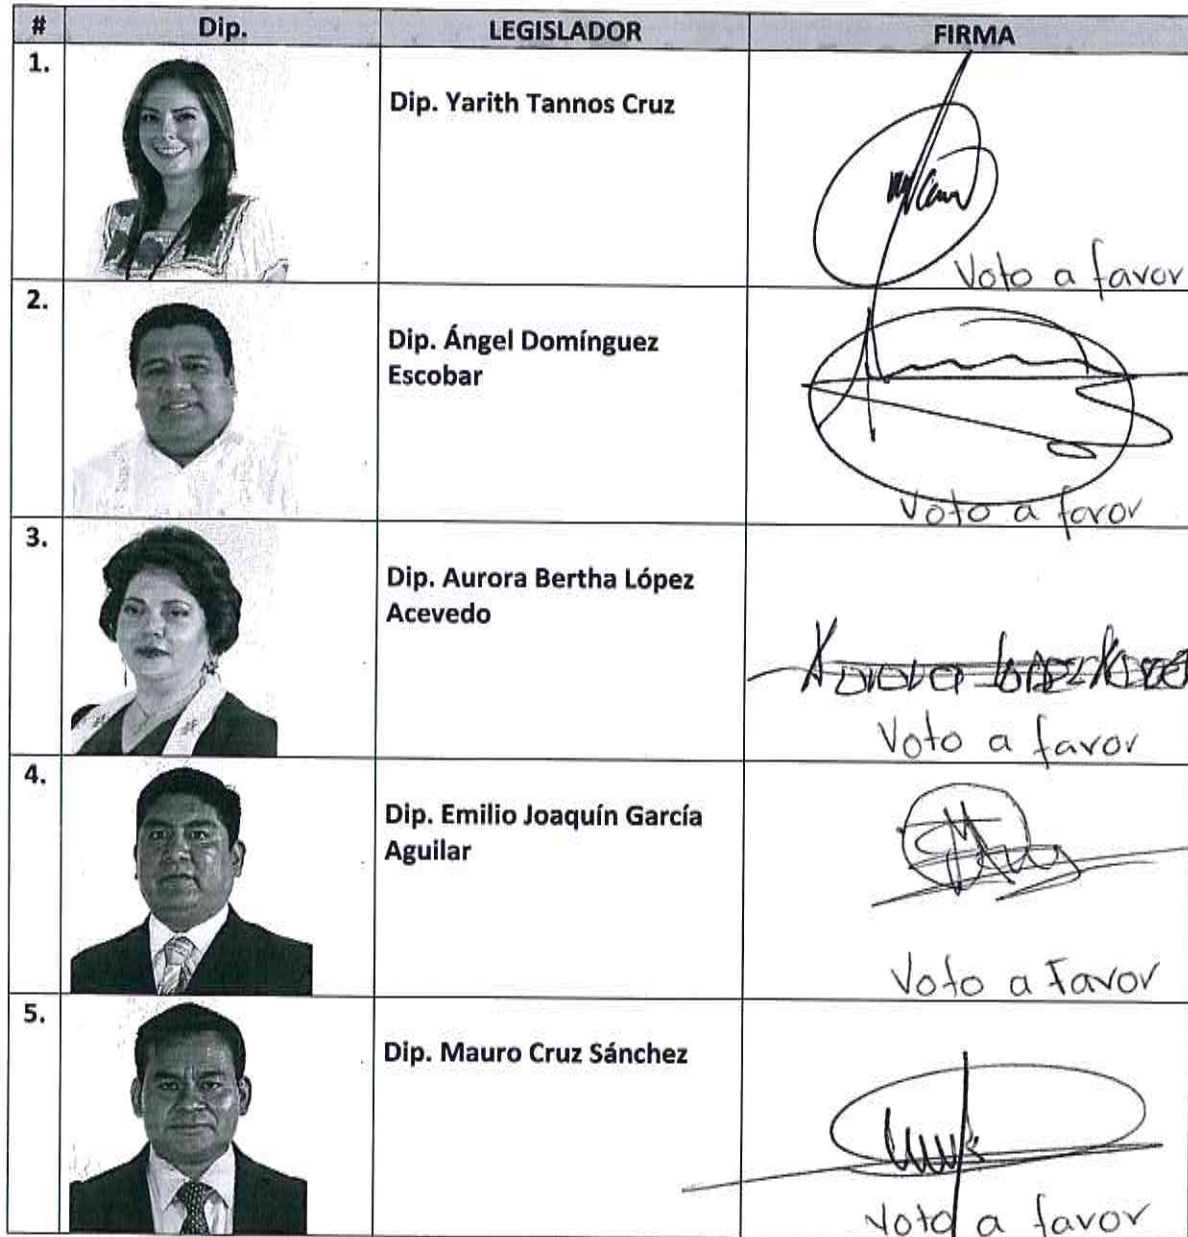 # Dip. LEGISLADOR FIRMA
1.
Dip. Yarith Tannos Cruz
Voto a favor
2.
Dip. Ángel Domínguez
Escobar
Voto a favor
3.
Dip. Aurora Bertha López
Acevedo
Aurora López Acevedo
Voto a favor
4.
Dip. Emilio Joaquín García
Aguilar
Voto a Favor
5.
Dip. Mauro Cruz Sánchez
Voto a favor